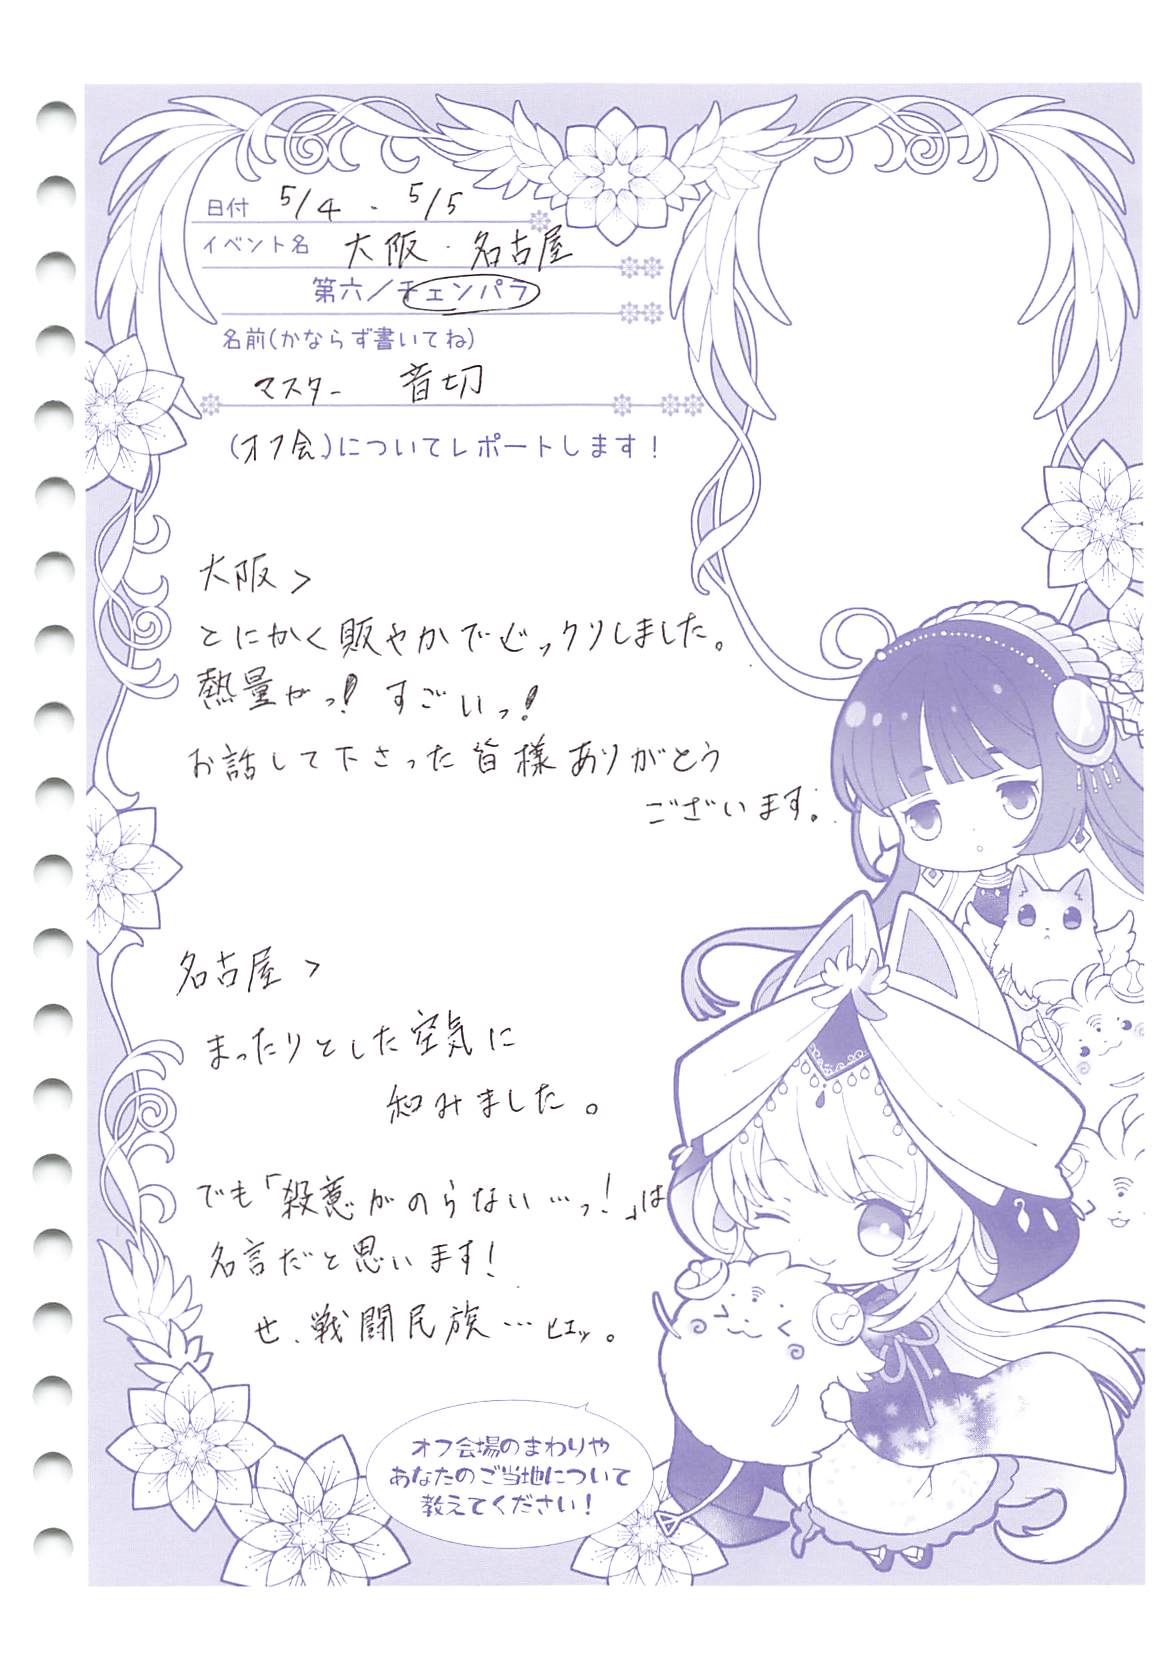 日付 5/4 . 5/5
イベント名 大阪 . 名古屋
第六/チェンパラ
名前(かならず書いてね)
マスター 音切
(オフ会)についてレポートします!
大阪>
とにかく賑やかでびっクリしました。
熱量がっ! すごいっ!
お話して下さった皆様ありがとう
ございます.
名古屋>
まったりとした空気に
和みました。
でも「殺意がのらない…っ!」は
名言だと思います!
せ、戦闘民族…ヒェッ。
オフ会場のまわりや
あなたのご当地について
教えてください!